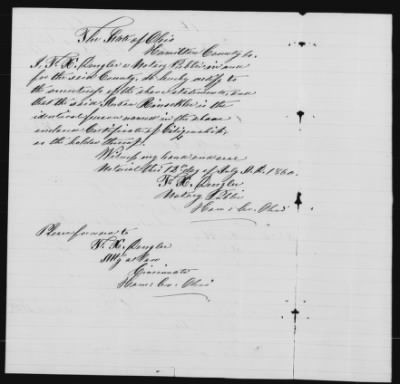 The State of Ohio
Hamilton County ss.
I, F. X. Dengler a Notary Public in and
for the said County, do hereby certify to
the correctness of the above statements, and
that the said Rinsckler is the
identical person named in the above
enclosed Certificate of Citizenship,
as the holder thereof.
Witness my hand and
Notarial this 12th day of July A.D. 1860.
F. X. Dengler
Notary Public
Ham: Co: Ohio
Please forward to
F. X. Dengler
Atty at Law
Cincinnati
Ham: Co: Ohio